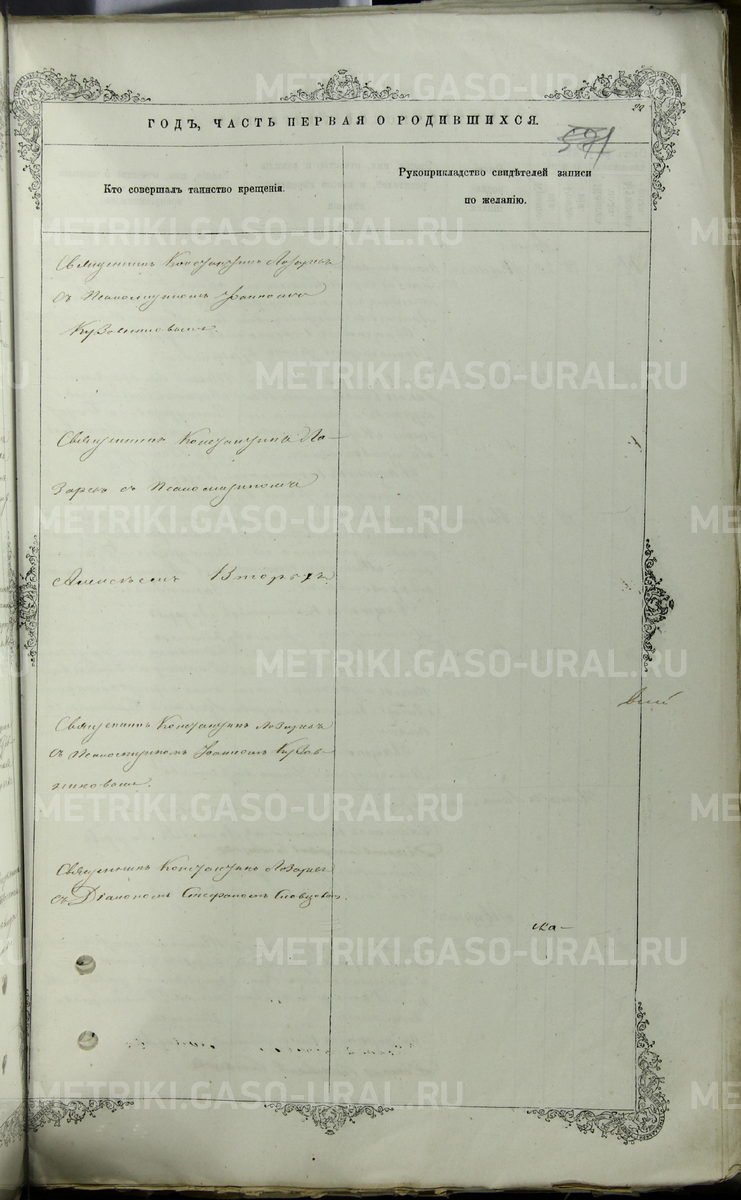 METRIKI.GASO-URAL.RU
20
ГОДЪ, ЧАСТЬ ПЕРВАЯ О РОДИВШИХСЯ.
Кто совершалъ таинство крещенія.
Рукоприкладство свидѣтелей записи
по желанію.
Священникъ Константинъ Лазаревъ
съ Псаломщикомъ Іоанномъ
Священникъ Константинъ Ла-
заревъ съ Псаломщикомъ
Алексѣемъ Вторыхъ
Священникъ Константинъ Лазаревъ
съ Псаломщикомъ Іоанномъ
Священникъ Константинъ Лазаревъ
съ Діакономъ Стефаномъ Словцовымъ.